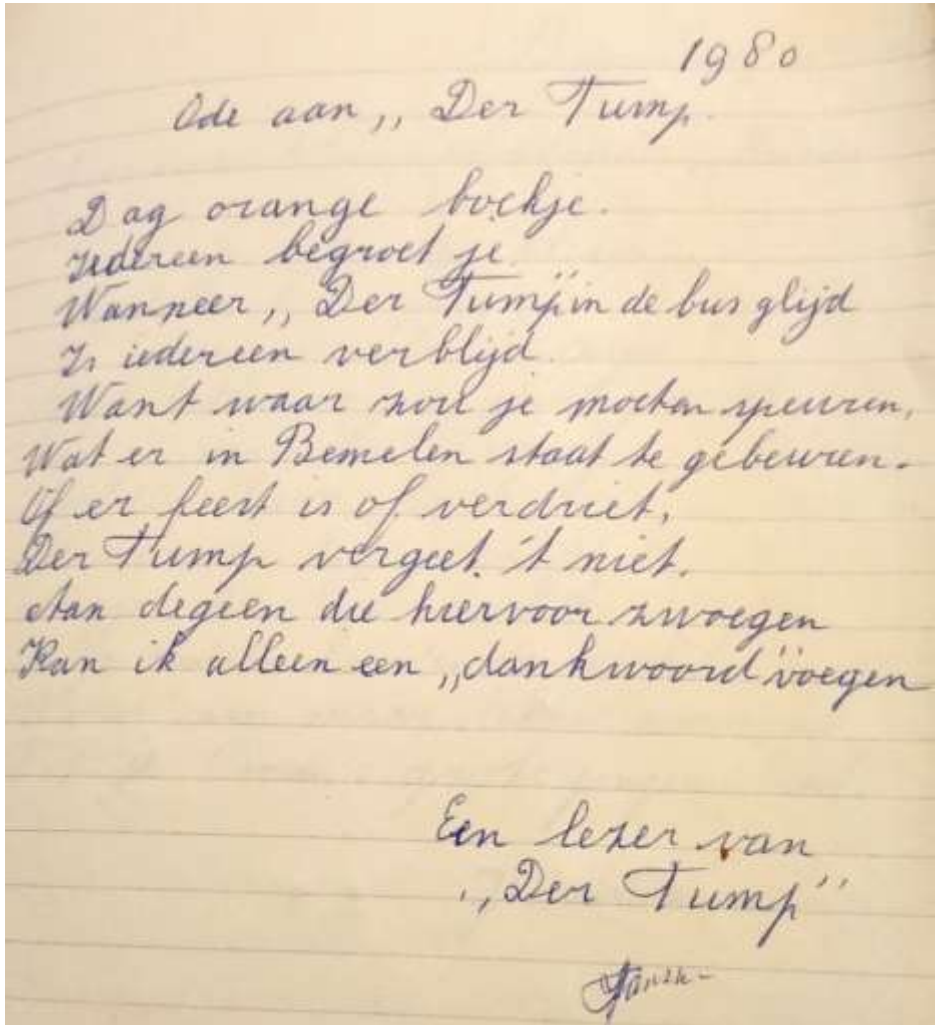 1980
Ode aan ,, Der Tump.
Dag orange boekje.
Iedereen begroet je.
Wanneer ,, Der Tump" in de bus glijd
Is iedereen verblijd.
Want waar zou je moeten speuren,
Wat er in Bemelen staat te gebeuren.
Of er feest is of verdriet,
Der Tump vergeet 't niet.
Aan degeen die hiervoor zwoegen
Kan ik alleen een ,,dankwoord" voegen
Een lezer van
,, Der Tump"